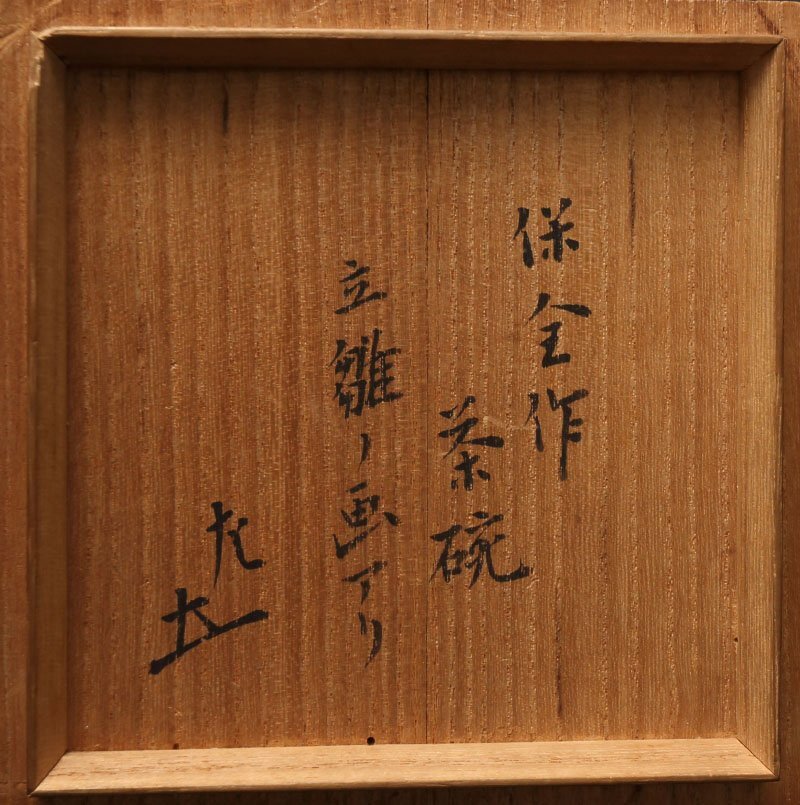 保全作
茶碗
立雛ノ画アリ
左